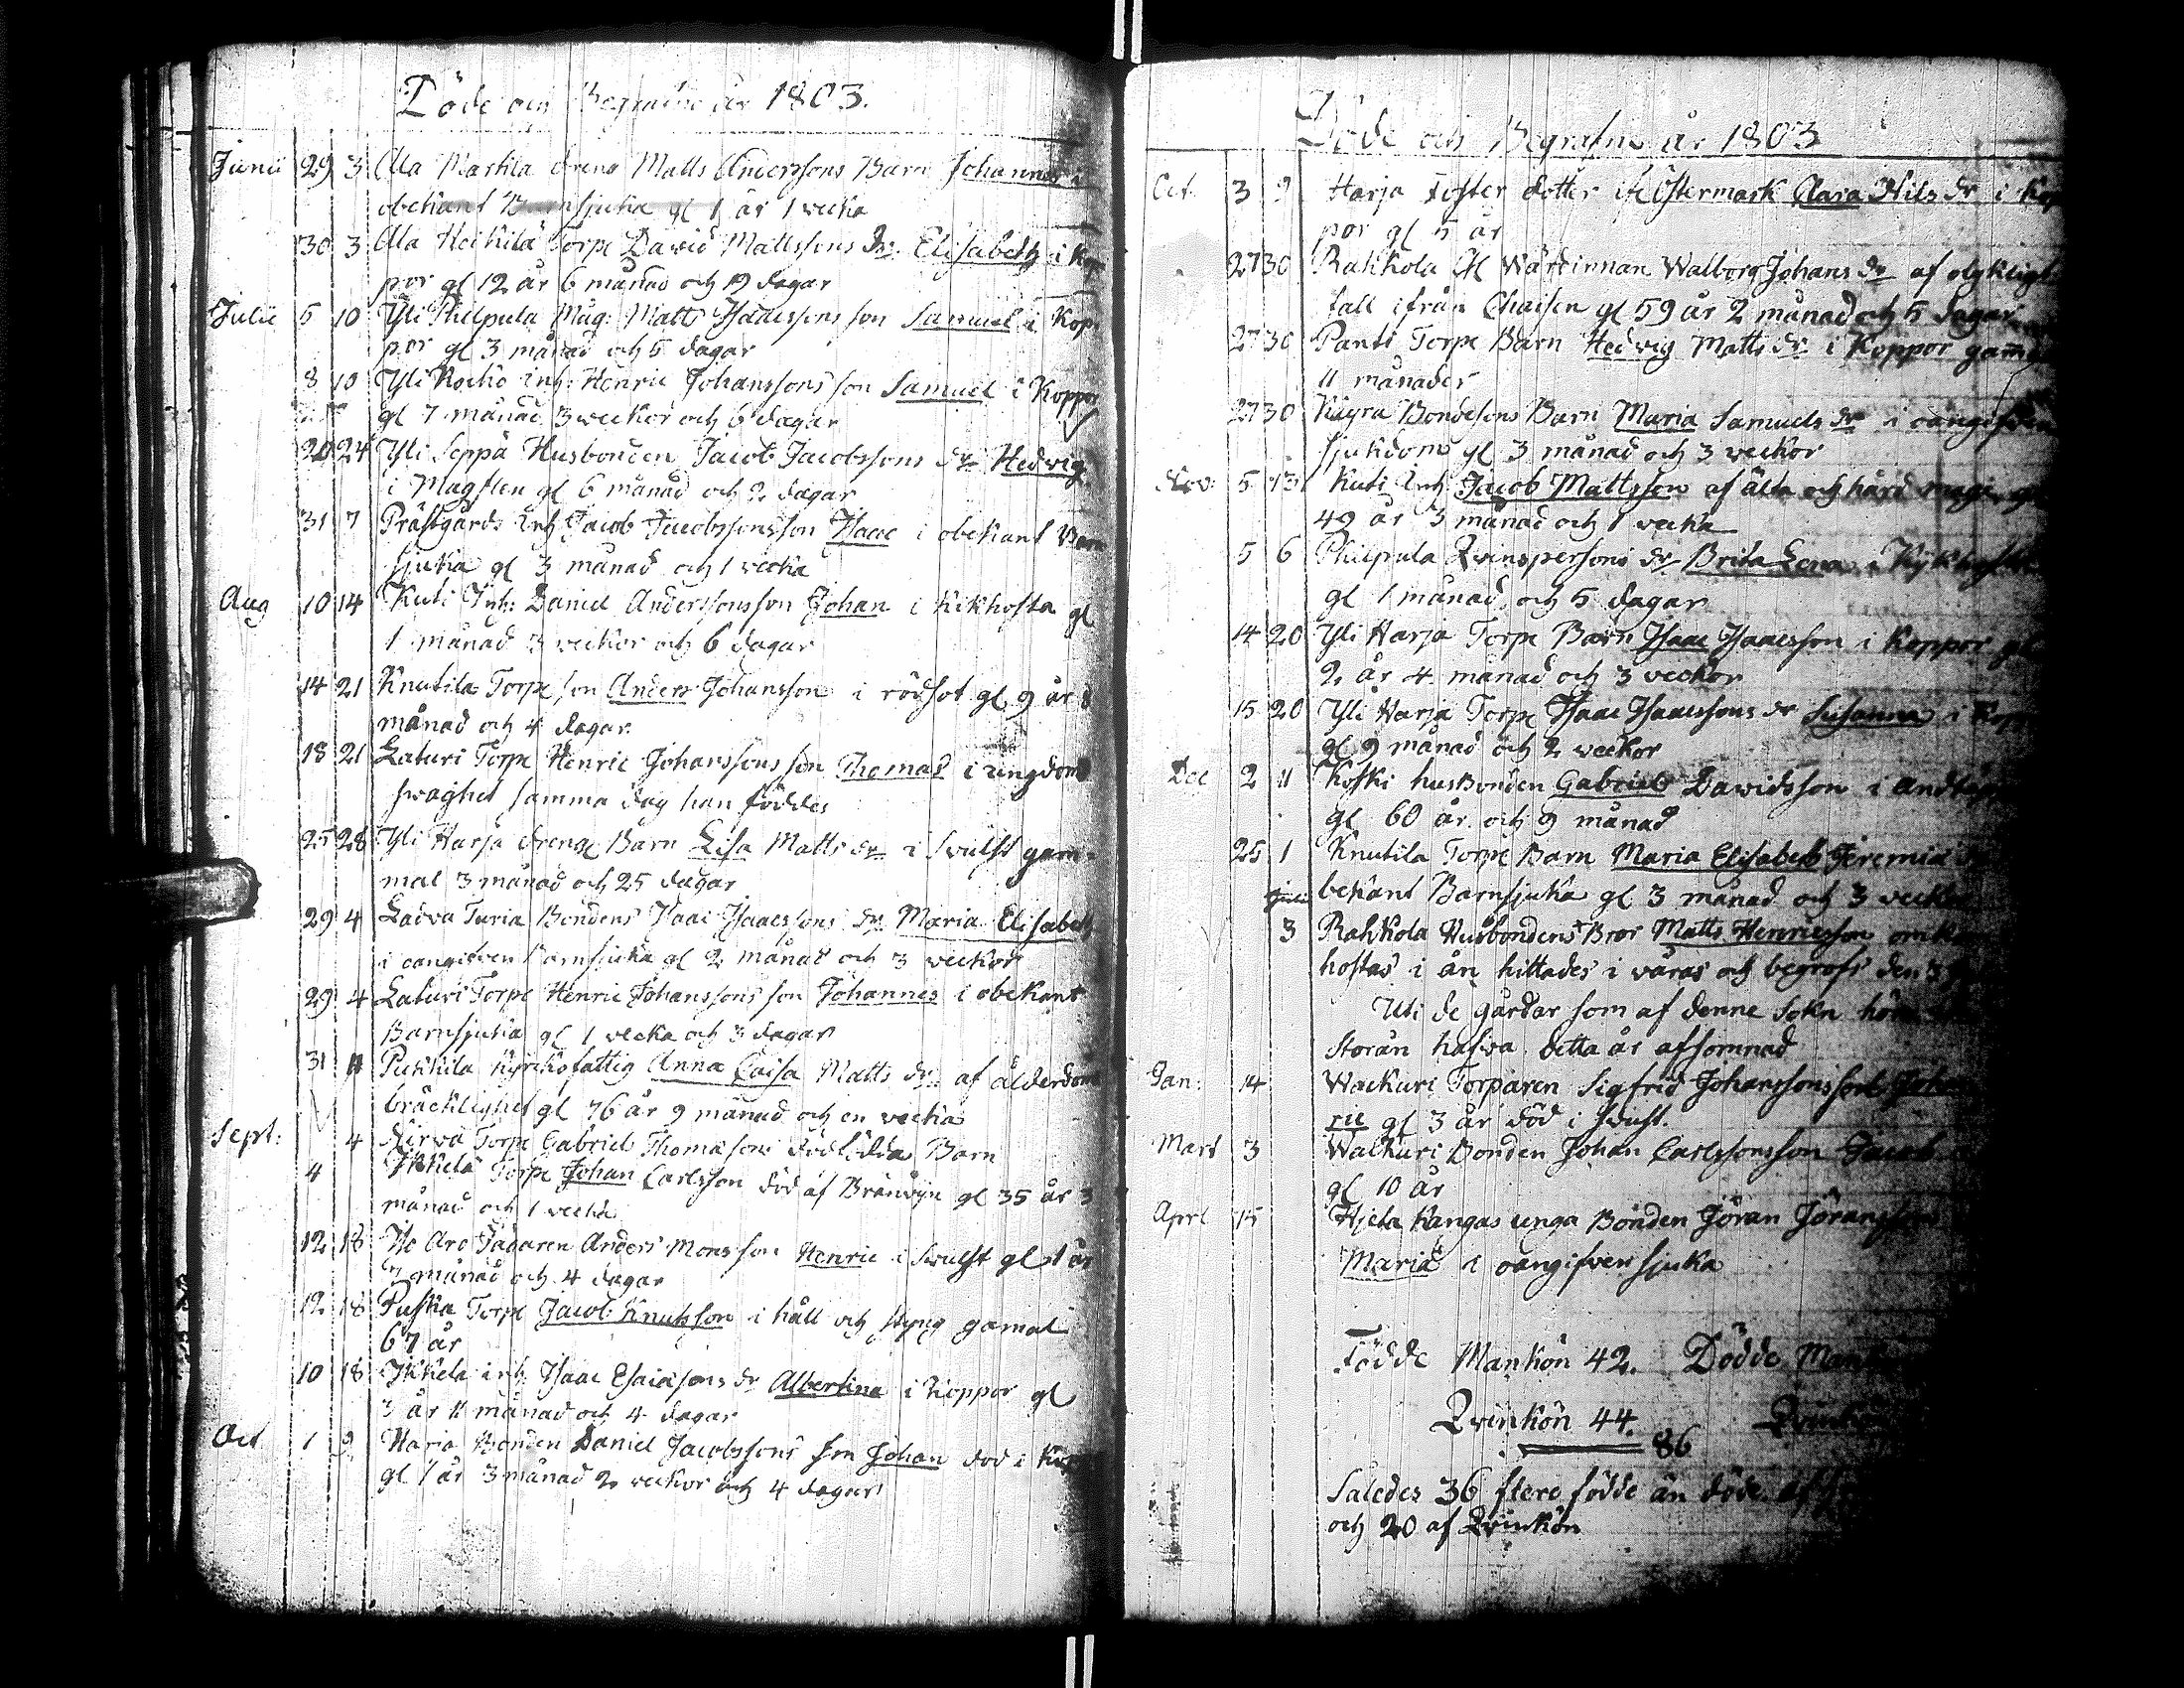 Döde och Begrafne år 1803.
Junii 29 3 Ala Markila dreng Matts Anderssons Barn Johannes i
obekant Barnsjuka gl 1 år 1 vecka
30 3 Ala Heikilä Torp David Mattssons dr Elisabeth i Kop
por gl 12 år 6 månad och 19 dagar
Julii 5 10 Yli Philpula Måg: Matts Isaacssons son Samuel i Kop
por gl 3 månad och 5 dagar
8 10 Yli Rocko inh: Henric Johanssons son Samuel i Koppor
gl 7 månad 3 veckor och 6 dagar
20 24 Yli Seppä Husbonden Jacob Jacobssons dr Hedvig
i Magsten gl 6 månad och 2 dagar
31 7 Prästgårds Inh Jacob Jacobssons son Isaac i obekant Barn
sjuka gl 3 månad och 1 vecka
Aug 10 14 Kuti Inh: Daniel Anderssons son Johan i kikhosta gl
1 månad 3 veckor och 6 dagar
14 21 Knutila Torp son Anders Johansson i rödsot gl 9 år 8
månad och 4 dagar
18 21 Laturi Torp Henric Johanssons son Thomas i ungdoms
svaghet samma dag han föddes
25 28 Yli Harja dreng Barn Lisa Matts dr i svulst gam
mal 3 månad och 25 dagar
29 4 Ladva Turia Bondens Isaac Isaacssons dr Maria Elisabeth
i oangifven Barnsjuka gl 2 månad och 3 veckor
29 4 Laturi Torp Henric Johanssons son Johannes i obekant
Barnsjuka gl 1 vecka och 3 dagar
31 11 Pukkila Kyrkofattig Anna Caisa Matts dr af ålderdoms
bräcklighet gl 76 år 9 månad och en vecka
Sept: 4 Torp Gabriel Thomassons dödfödda Barn
4 Ikkelä Torp Johan Carlsson död af Bränvijn gl 35 år 3
månad och 1 vecka
12 18 Anders Monsson Henric i svulst gl 1 år
månad och 4 dagar
12 18 Puska Torp Jacob Knutsson i håll och styng gamal
67 år
10 18 Ikkelä inh Isaac Esaiasons dr Albertina i Koppor gl
3 år 11 månad och 4 dagar
Oct 1 9 Harja Bonden Daniel Jacobssons son Johan död i
gl 1 år 3 månad 2 veckor och 4 dagar
Döde och Begrafne år 1803
Oct. 3 9 Harja Foster dotter ifr Östermark Clara Nils dr i Kop
por gl 5 år
27 30 Rahkola Gl Wärdinnan Walborg Johans dr af olyckligt
fall ifrån Chaisen gl 59 år 2 månad och 5 dagar
27 30 Panti Torp Barn Hedvig Matts dr i Koppor
11 månader
27 30 Kägra Bondesons Barn Maria Samuels dr i oangifven
sjukdom gl 3 månad och 3 veckor
Nov: 5 13 Kuti Inh Jacob Mattsson af älta och hård mage gl
49 år 3 månad och 1 vecka
5 6 Philpula Qvinspersons dr Brita Lena i Kykhosta
gl 1 månad och 5 dagar
14 20 Yli Harja Torp Barn Isaac Isaacsson i Koppor gl
2 år 4 månad och 3 veckor
15 20 Yli Harja Torp Isaac Isaacssons dr Susanna i Kop
gl 9 månad och 2 veckor
Dec 2 11 Koski husbonden Gabriel Davidsson i
gl 60 år och 9 månad
25 1 Knutila Torp Barn Maria Elisabeth Jeremia
bekant Barnsjuka gl 3 månad och 3 veckor
Junii
3 Rahkola Husbondens Bror Matts Henricsson
hostas i ån hittades i våras och begrofs den 3
Uti de gårdar som af denne Sokn
Storån hafva detta år afsomnad
Jan: 14 Walkuri Torparen Sigfrid Johanssons son
ric gl 3 år död i svulst.
Mart 3 Walkuri Bonden Johan Carlssons son Jacob
gl 10 år
Aprl 15 Hjelä Kangas unga Bonden Jöran
Maria i oangifven sjuka
Födde Mankön 42. Dödde
Qvinkön 44.
86
Således 36 flere födde än döde af
och 20 af Qvinkön